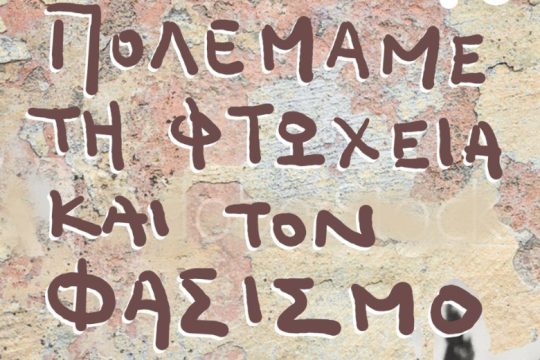 ΠΟΛΕΜΑΜΕ
ΤΗ ΦΤΩΧΕΙΑ
ΚΑΙ ΤΟΝ
ΦΑΣΙΣΜΟ